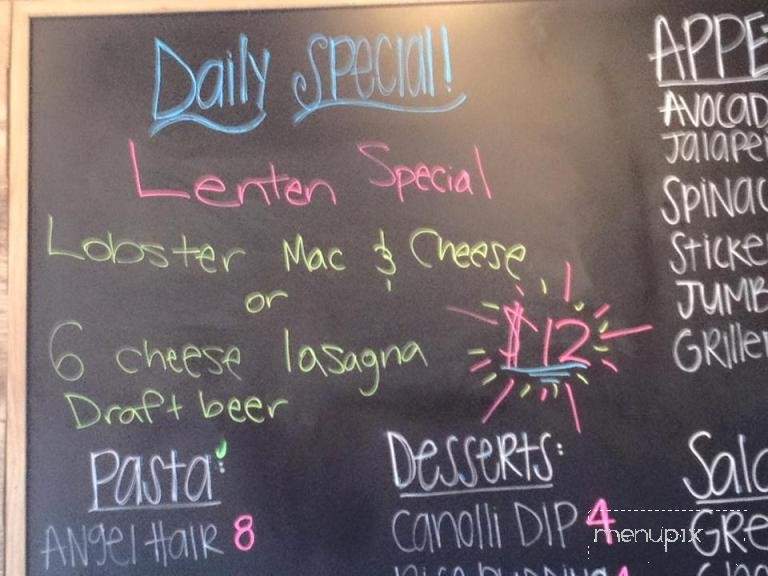 Daily Special!
Lenten Special
Lobster Mac & Cheese
or
6 cheese lasagna
Draft beer
$12
Pasta:
Angel Hair 8
Desserts:
Canolli Dip 4
APPE
AVOCAD
Jalape
SPINAC
Sticke
JUMB
GRille
Sala
GRe
menupix